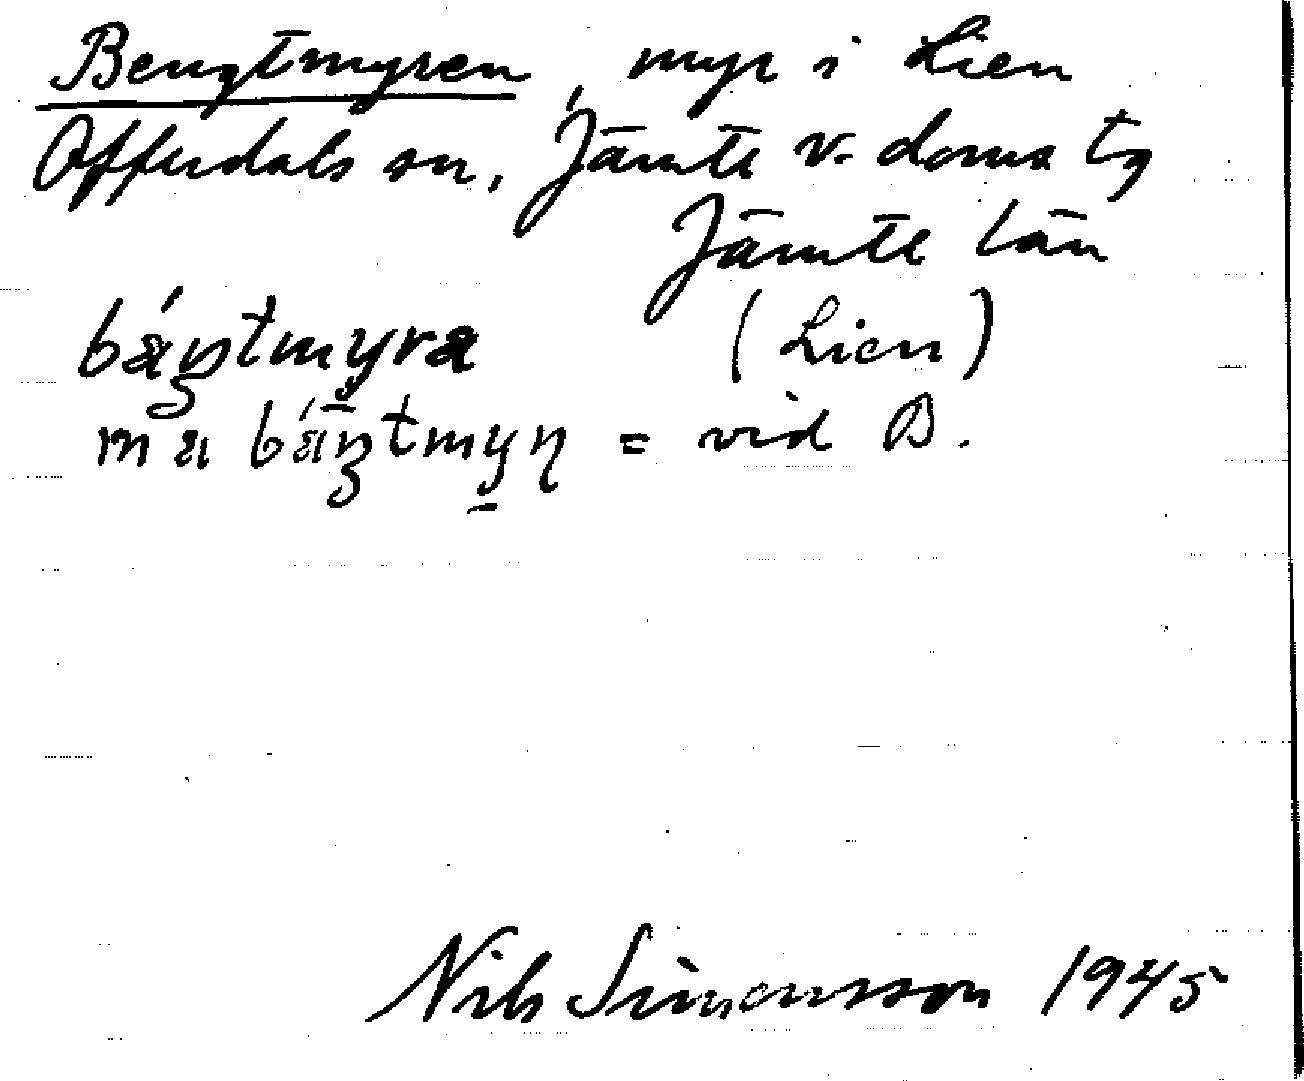 Bengtmyren, myr i Lien
Offerdals sn, Jämtl v. doms tg
Jämtl län
báŋtmyra (Lien)
ma báŋtmyn = vid B.
Nils Simonsson 1945